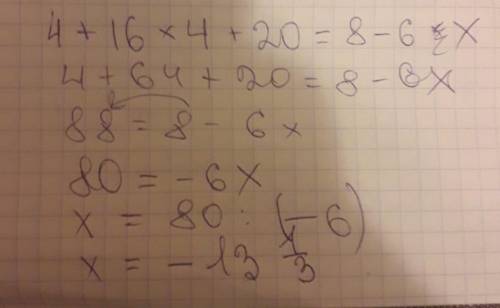 4 + 16 × 4 + 20 = 8 - 6 × X
4 + 64 + 20 = 8 - 6X
88 = 8 - 6x
80 = -6X
x = 80 : (-6)
x = -13 1/3